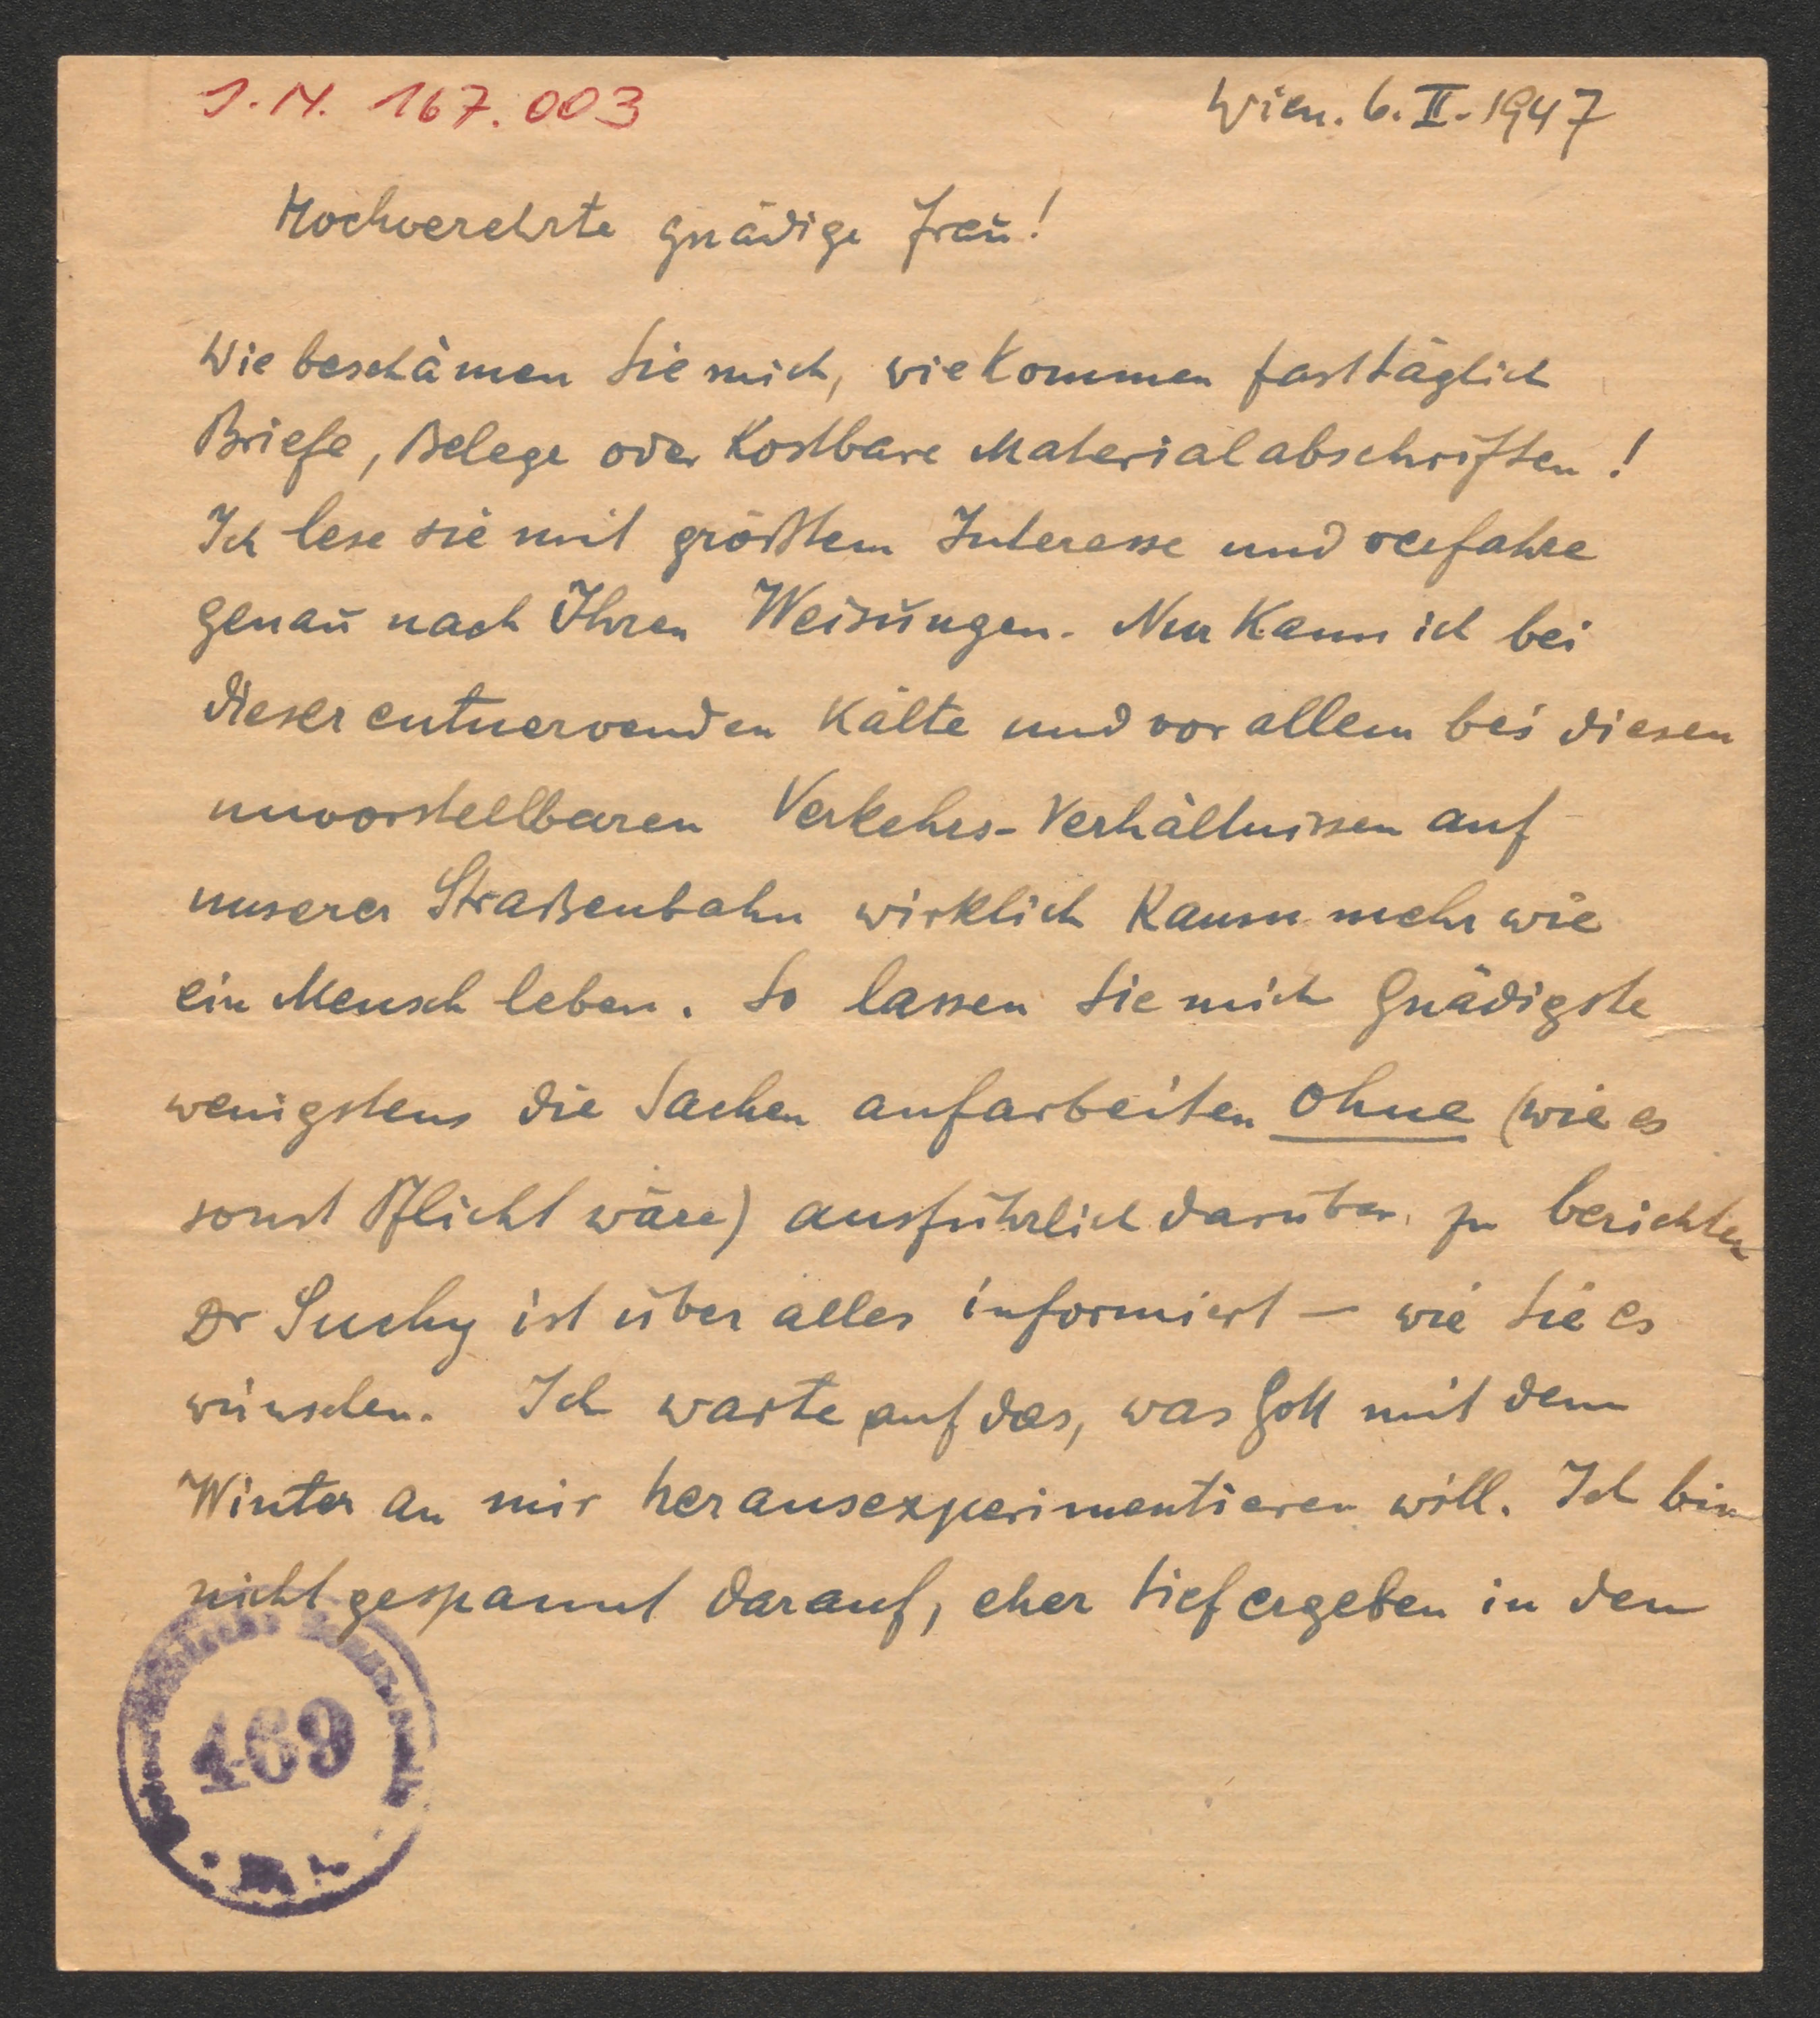 J.N. 167.003
Wien. 6. II. 1947
Hochverehrte gnädige Frau!
Wie beschämen Sie mich, wie kommen fast täglich
Briefe, Belege oder kostbare Materialabschriften!
Ich lese sie mit größtem Interesse und verfahre
genau nach Ihren Weisungen. Nur kann ich bei
dieser entnervenden Kälte und vor allem bei diesen
unvorstellbaren Verkehrs-Verhältnissen auf
unserer Straßenbahn wirklich kaum mehr wie
ein Mensch leben. So lassen Sie mich Gnädigste
wenigstens die Sachen aufarbeiten ohne (wie es
sonst Pflicht wäre) ausführlich darüber zu berichten
Dr Suchy ist über alles informiert – wie Sie es
wünschen. Ich warte auf das, was Gott mit dem
Winter an mir herausexperimentieren will. Ich bin
nicht gespannt darauf, eher tief ergeben in den
469